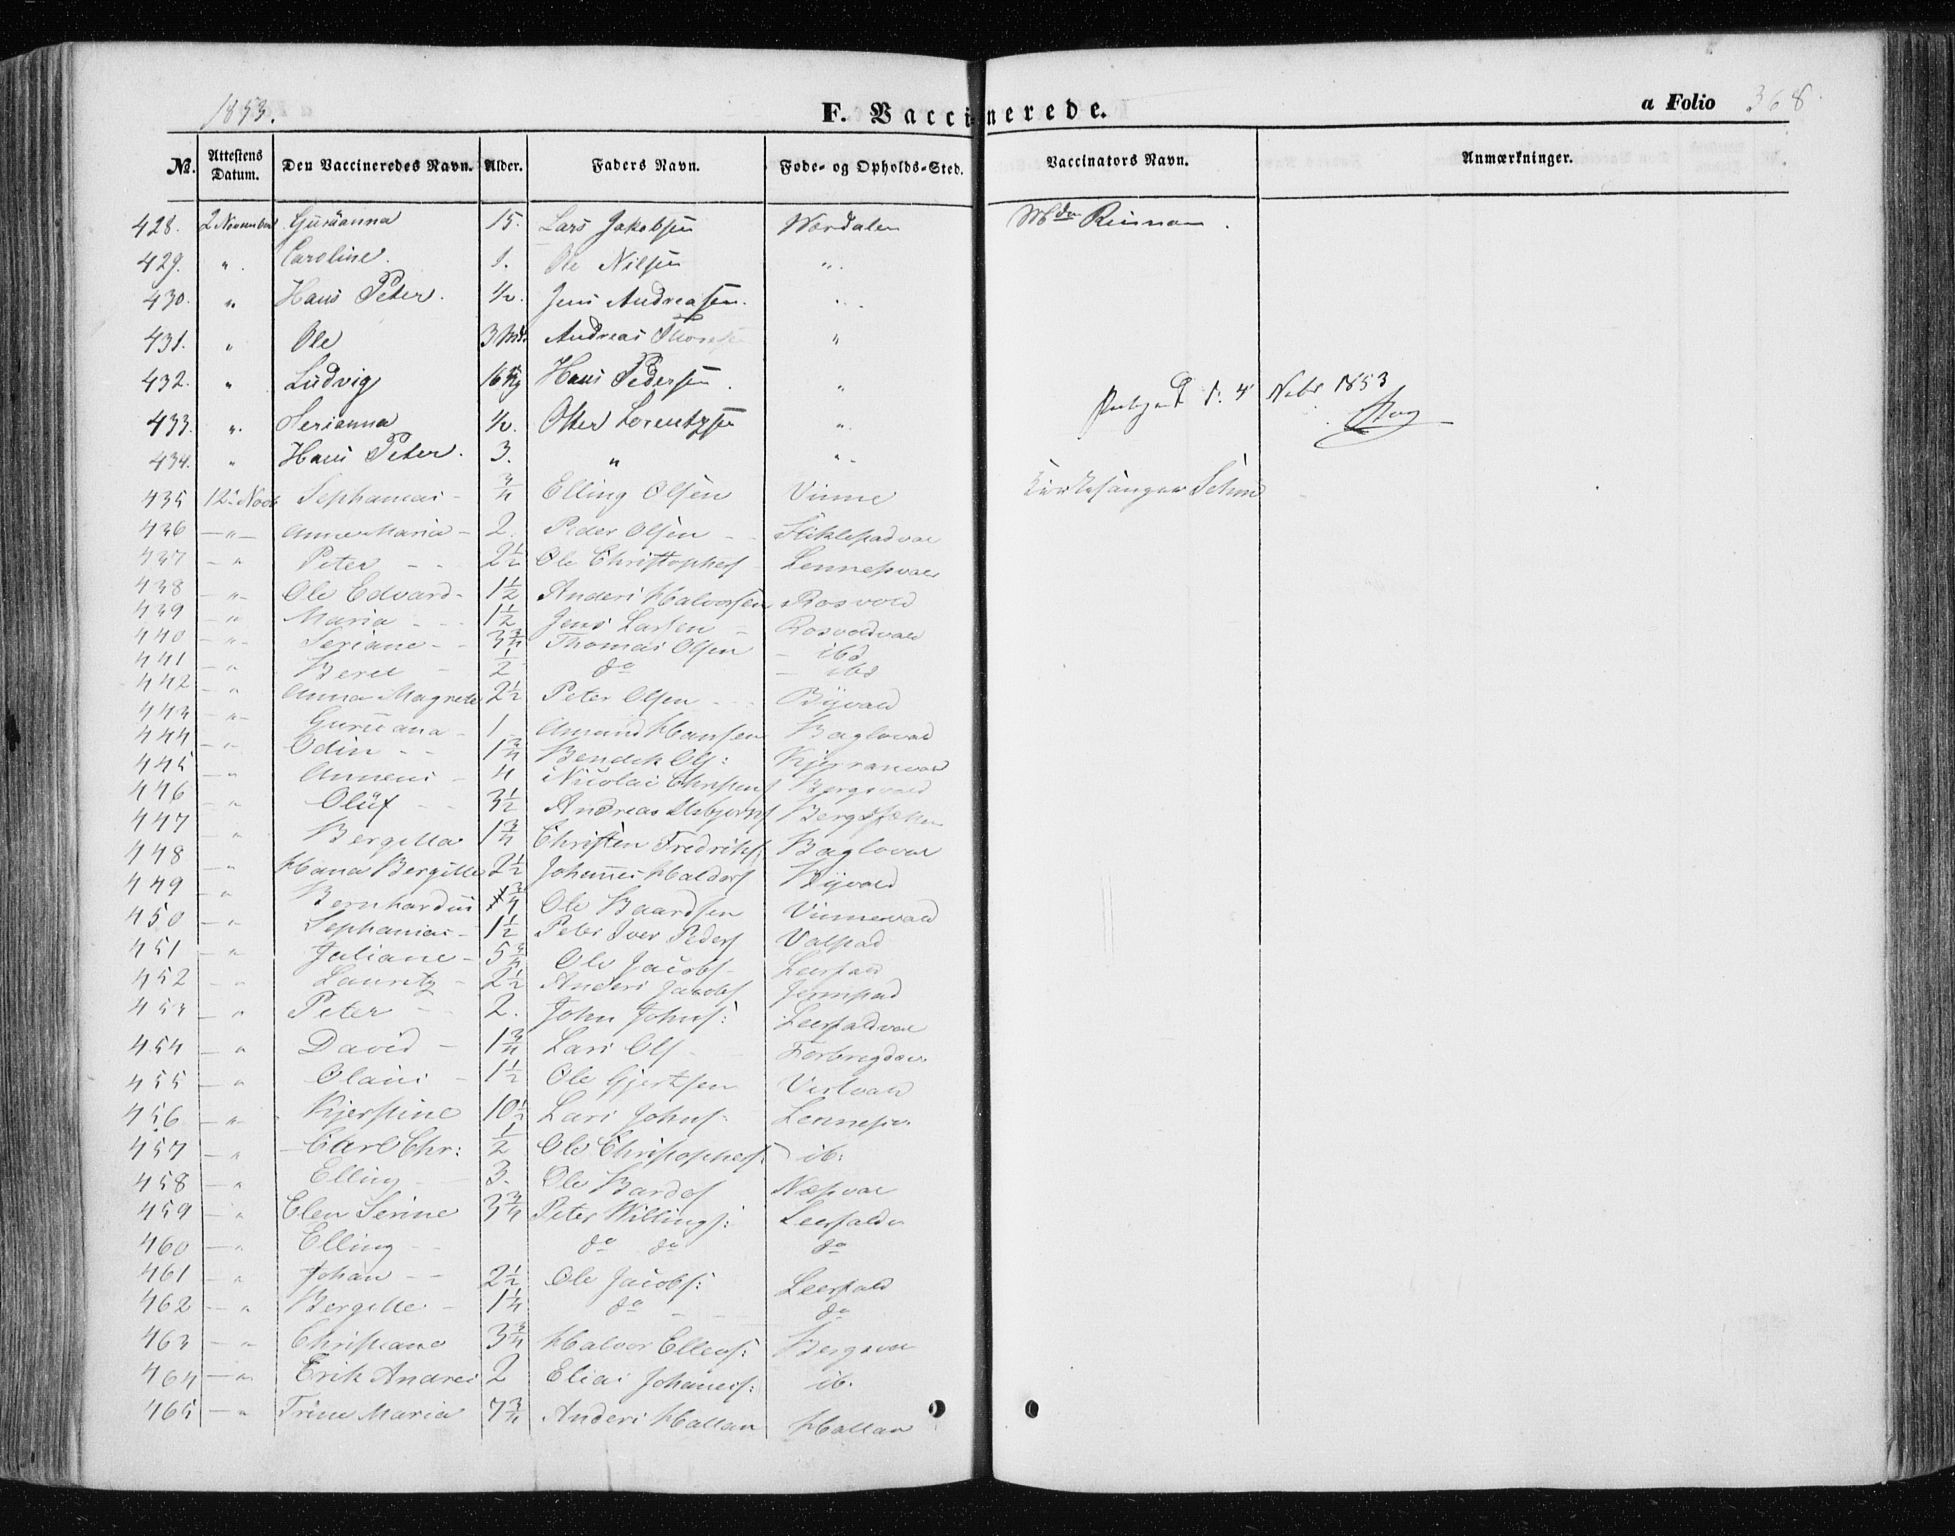 1853.
F. Vaccinerede.
a Folio 368.
No. Attestens Datum. Den Vaccineredes Navn. Alder. Faders Navn. Føde- og Opholds-Sted. Vaccinators Navn. Anmærkninger.
428. 2 November Guruanna 15. Lars Jakobsen Værdalen Mdm Rinnan.
429. „ Caroline. 1. Ole Nilsen „
430. „ Hans Peter. 1/2. Jens Andreasen. „
431. „ Ole 3 Md. Andreas „
432. „ Ludvig 16 Hans Pedersen. „ 4 Nvbr 1853
433. „ Serianna 1/2. Lorentzsen „
434. „ Hans Peter. 3. „ „
435 12 Novb Sephanias - 3/4 Elling Olsen Vinne Kirkesanger
436 - „ - Anne Maria - 2. Peder Olsen - - Stiklestadvae
437 - „ Peter - - 2 1/2 Ole Christophers
438 - „ - Ole Edvard - 1 1/2 Anders Halvorsen Rosvold
439 - „ Maria - - 1 1/2 Jens Larsen - Rosvoldvald
440 - „ - Seriane - - 3 3/4 Thomas Olsen - ibd
441 - „ Beret - 1/2 do - ibd
442 - „ Anna Magrete 2 1/2 Peter Olsen - - - Byvald
443 - „ - Guruana - 1 - Amund Hansen Baglovald
444 - „ Odin - - 1 3/4 Bendik Ols: Kjerranvald
445 - „ Anneus - 4 Nicolai Bergsvald
446 - „ Oluf - - 3 1/2 Andreas
447 - „ Bergitta 1 3/4 Christen Fredriks: Baglovae
448 - „ Hana Bergitte 2 1/2 Johannes Haldors Byvald
449 - „ Bernhardus 3/4 Ole Baardsen Vinnesvald
450 - „ Sephanias - 1 1/2 Peter Iver Peders Valstad
451 - „ Juliane - 5 3/4 Ole Jacobs - Leerfald
452 - „ Lauritz - 2 1/2 Anders Jacobs
453 - „ Peter - - 2. John Johns: Leerfaldvae
454 - „ David - 1 3/4 Lars Ols - Forbregd
455 - „ Olaus - 1 1/2 Ole Gjertsen
456 - „ - Kjerstine 10 1/2 Lars Johns:
457 - „ - Carl Chr: 1/2 Ole Christophers: ib:
458 - „ Elling - 3. Ole Bardos
459 - „ Elen Serine 3 3/4 Peter Willings: Leerfald
460 - „ Elling - - do do do
461 - „ Johan - - 2 1/2 Ole Jacobs: Leerfald
462 - „ Bergitte - 1 1/4 do - do
463 - „ Christiane 3 3/4 Halvor Ellens: Bergsvae
464 - „ Erik Andreas 2 Elias Johanes: ib.
465 - „ Trine Maria 7 3/4 Anders Hallan Hallan